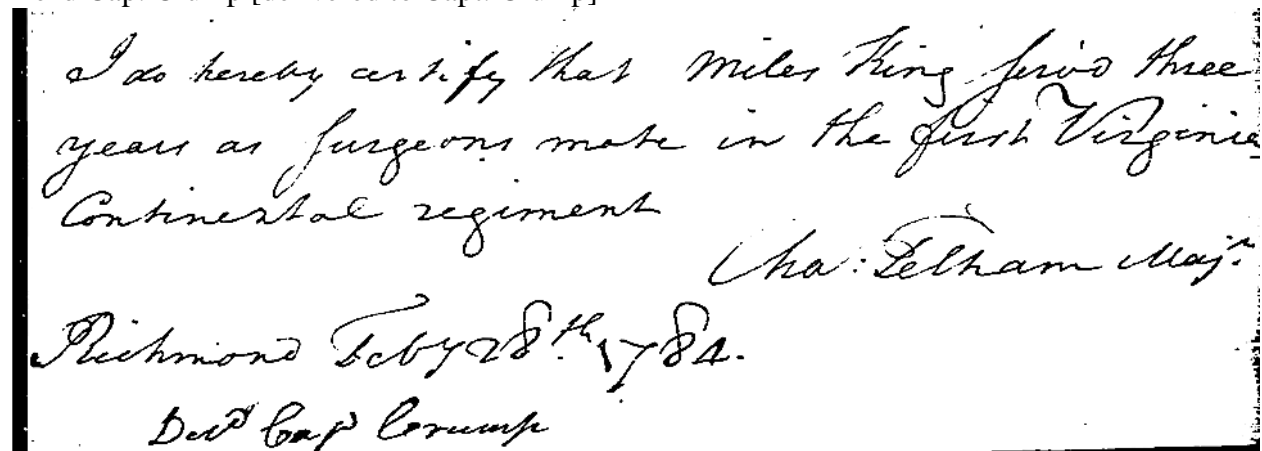 I do hereby certify that Miles King serv'd three
years as Surgeons mate in the first Virginia
Continental regiment
Cha: Pelham Maj.r
Richmond Feby 28th. 1784.
Deld Cap Crump